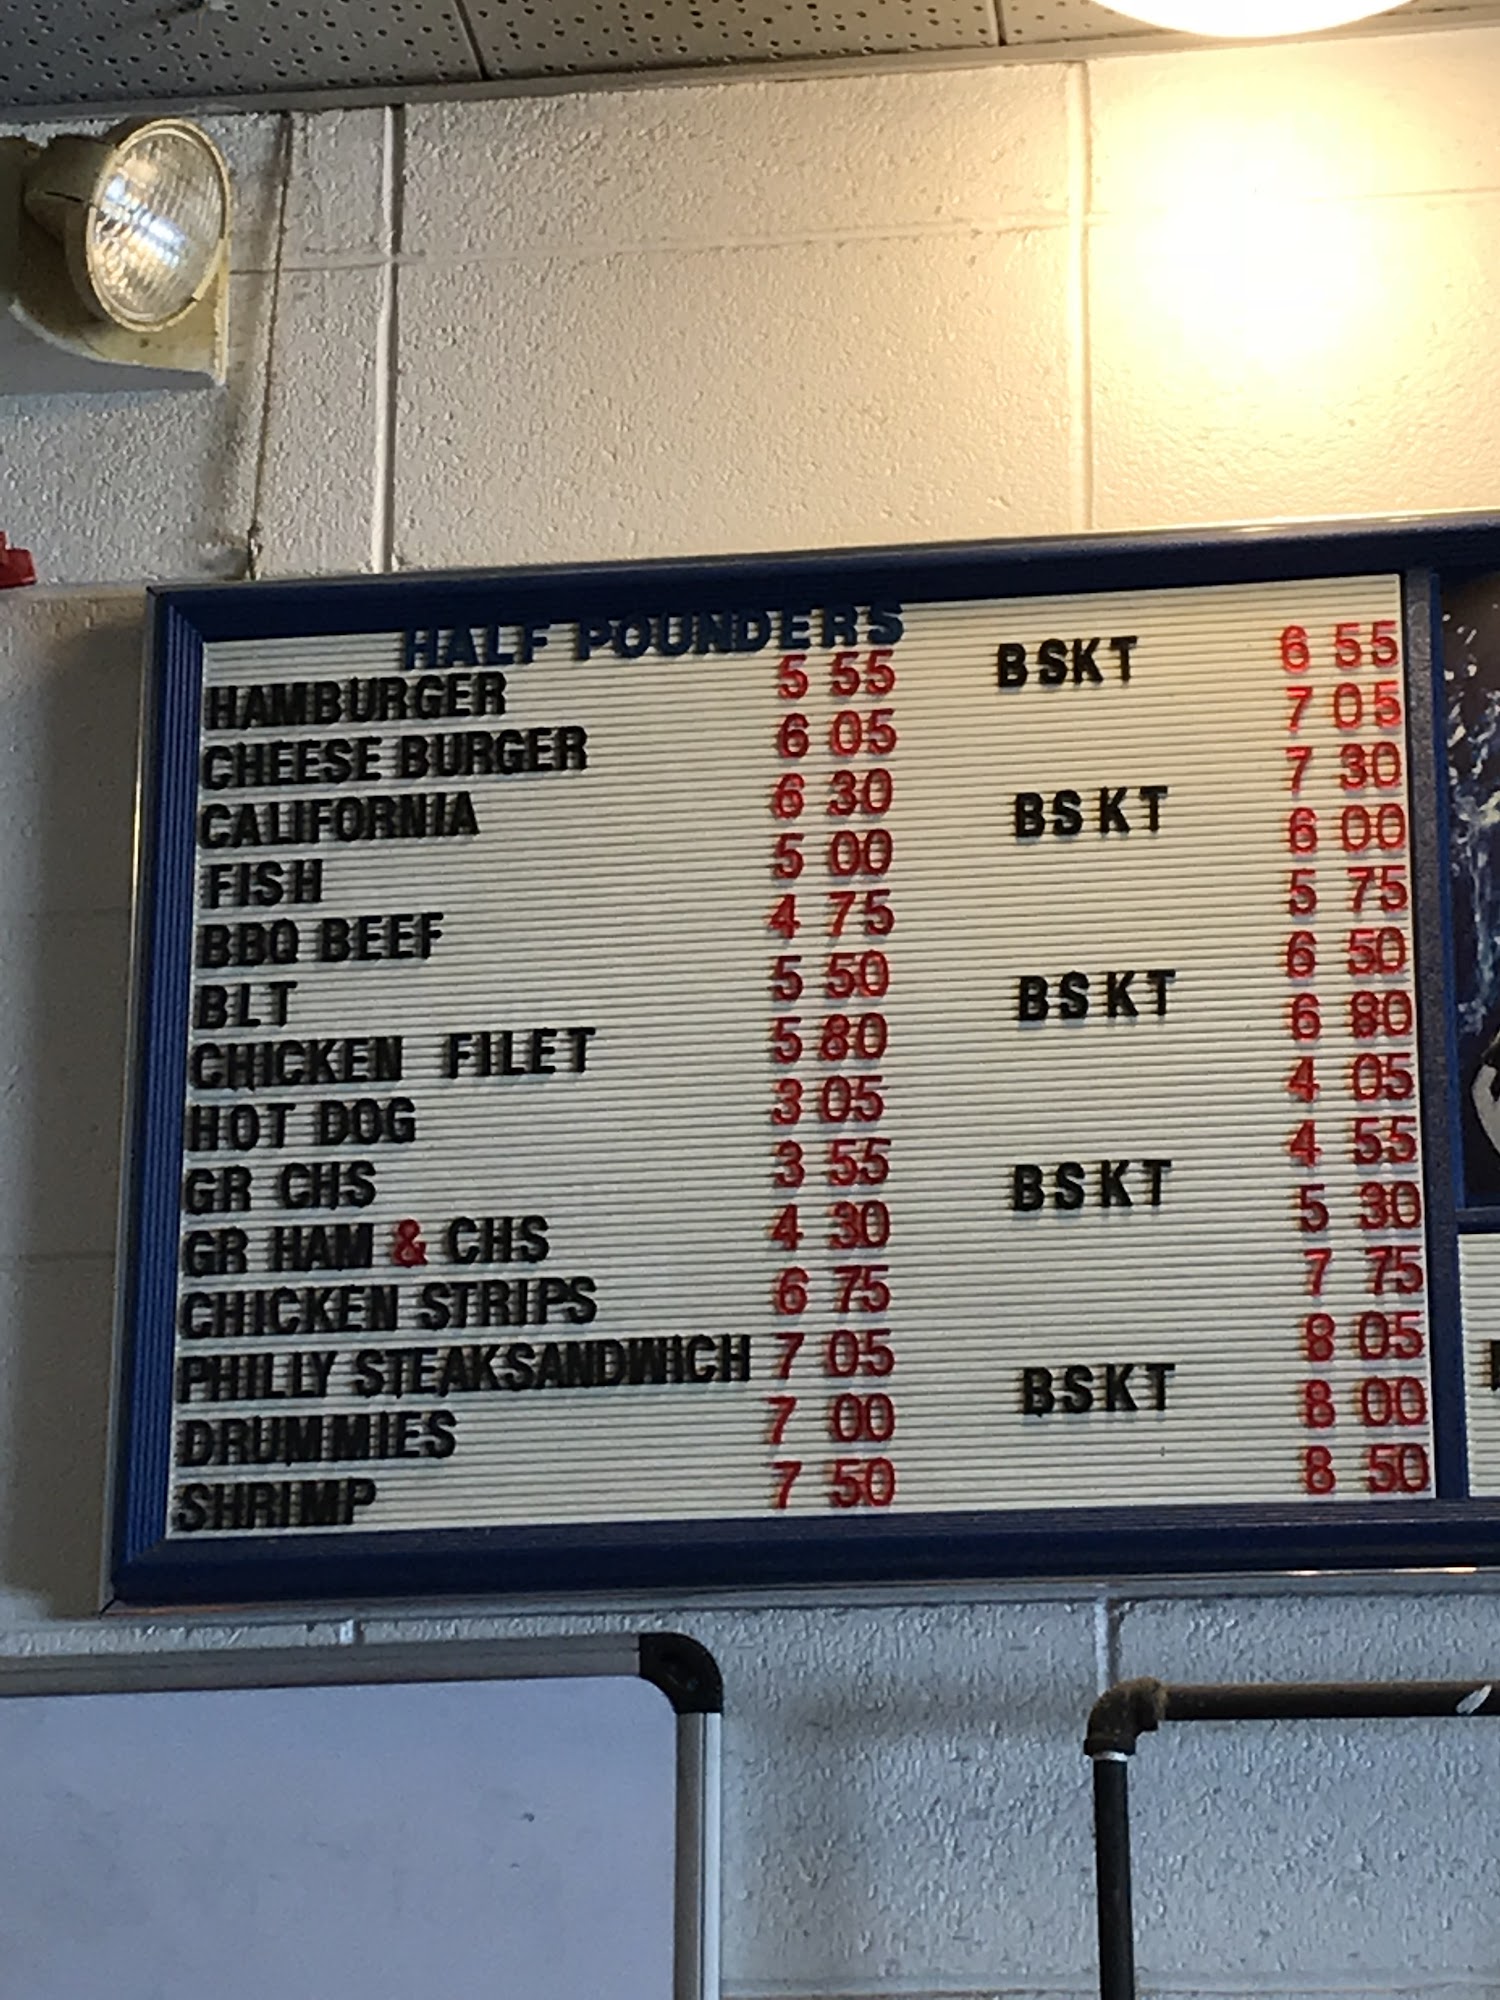 HALF POUNDERS
HAMBURGER 5 55 BSKT 6 55
CHEESE BURGER 6 05 7 05
CALIFORNIA 6 30 7 30
FISH 5 00 BSKT 6 00
BBQ BEEF 4 75 5 75
BLT 5 50 6 50
CHICKEN FILET 5 80 BSKT 6 80
HOT DOG 3 05 4 05
GR CHS 3 55 4 55
GR HAM & CHS 4 30 BSKT 5 30
CHICKEN STRIPS 6 75 7 75
PHILLY STEAKSANDWICH 7 05 8 05
DRUMMIES 7 00 BSKT 8 00
SHRIMP 7 50 8 50